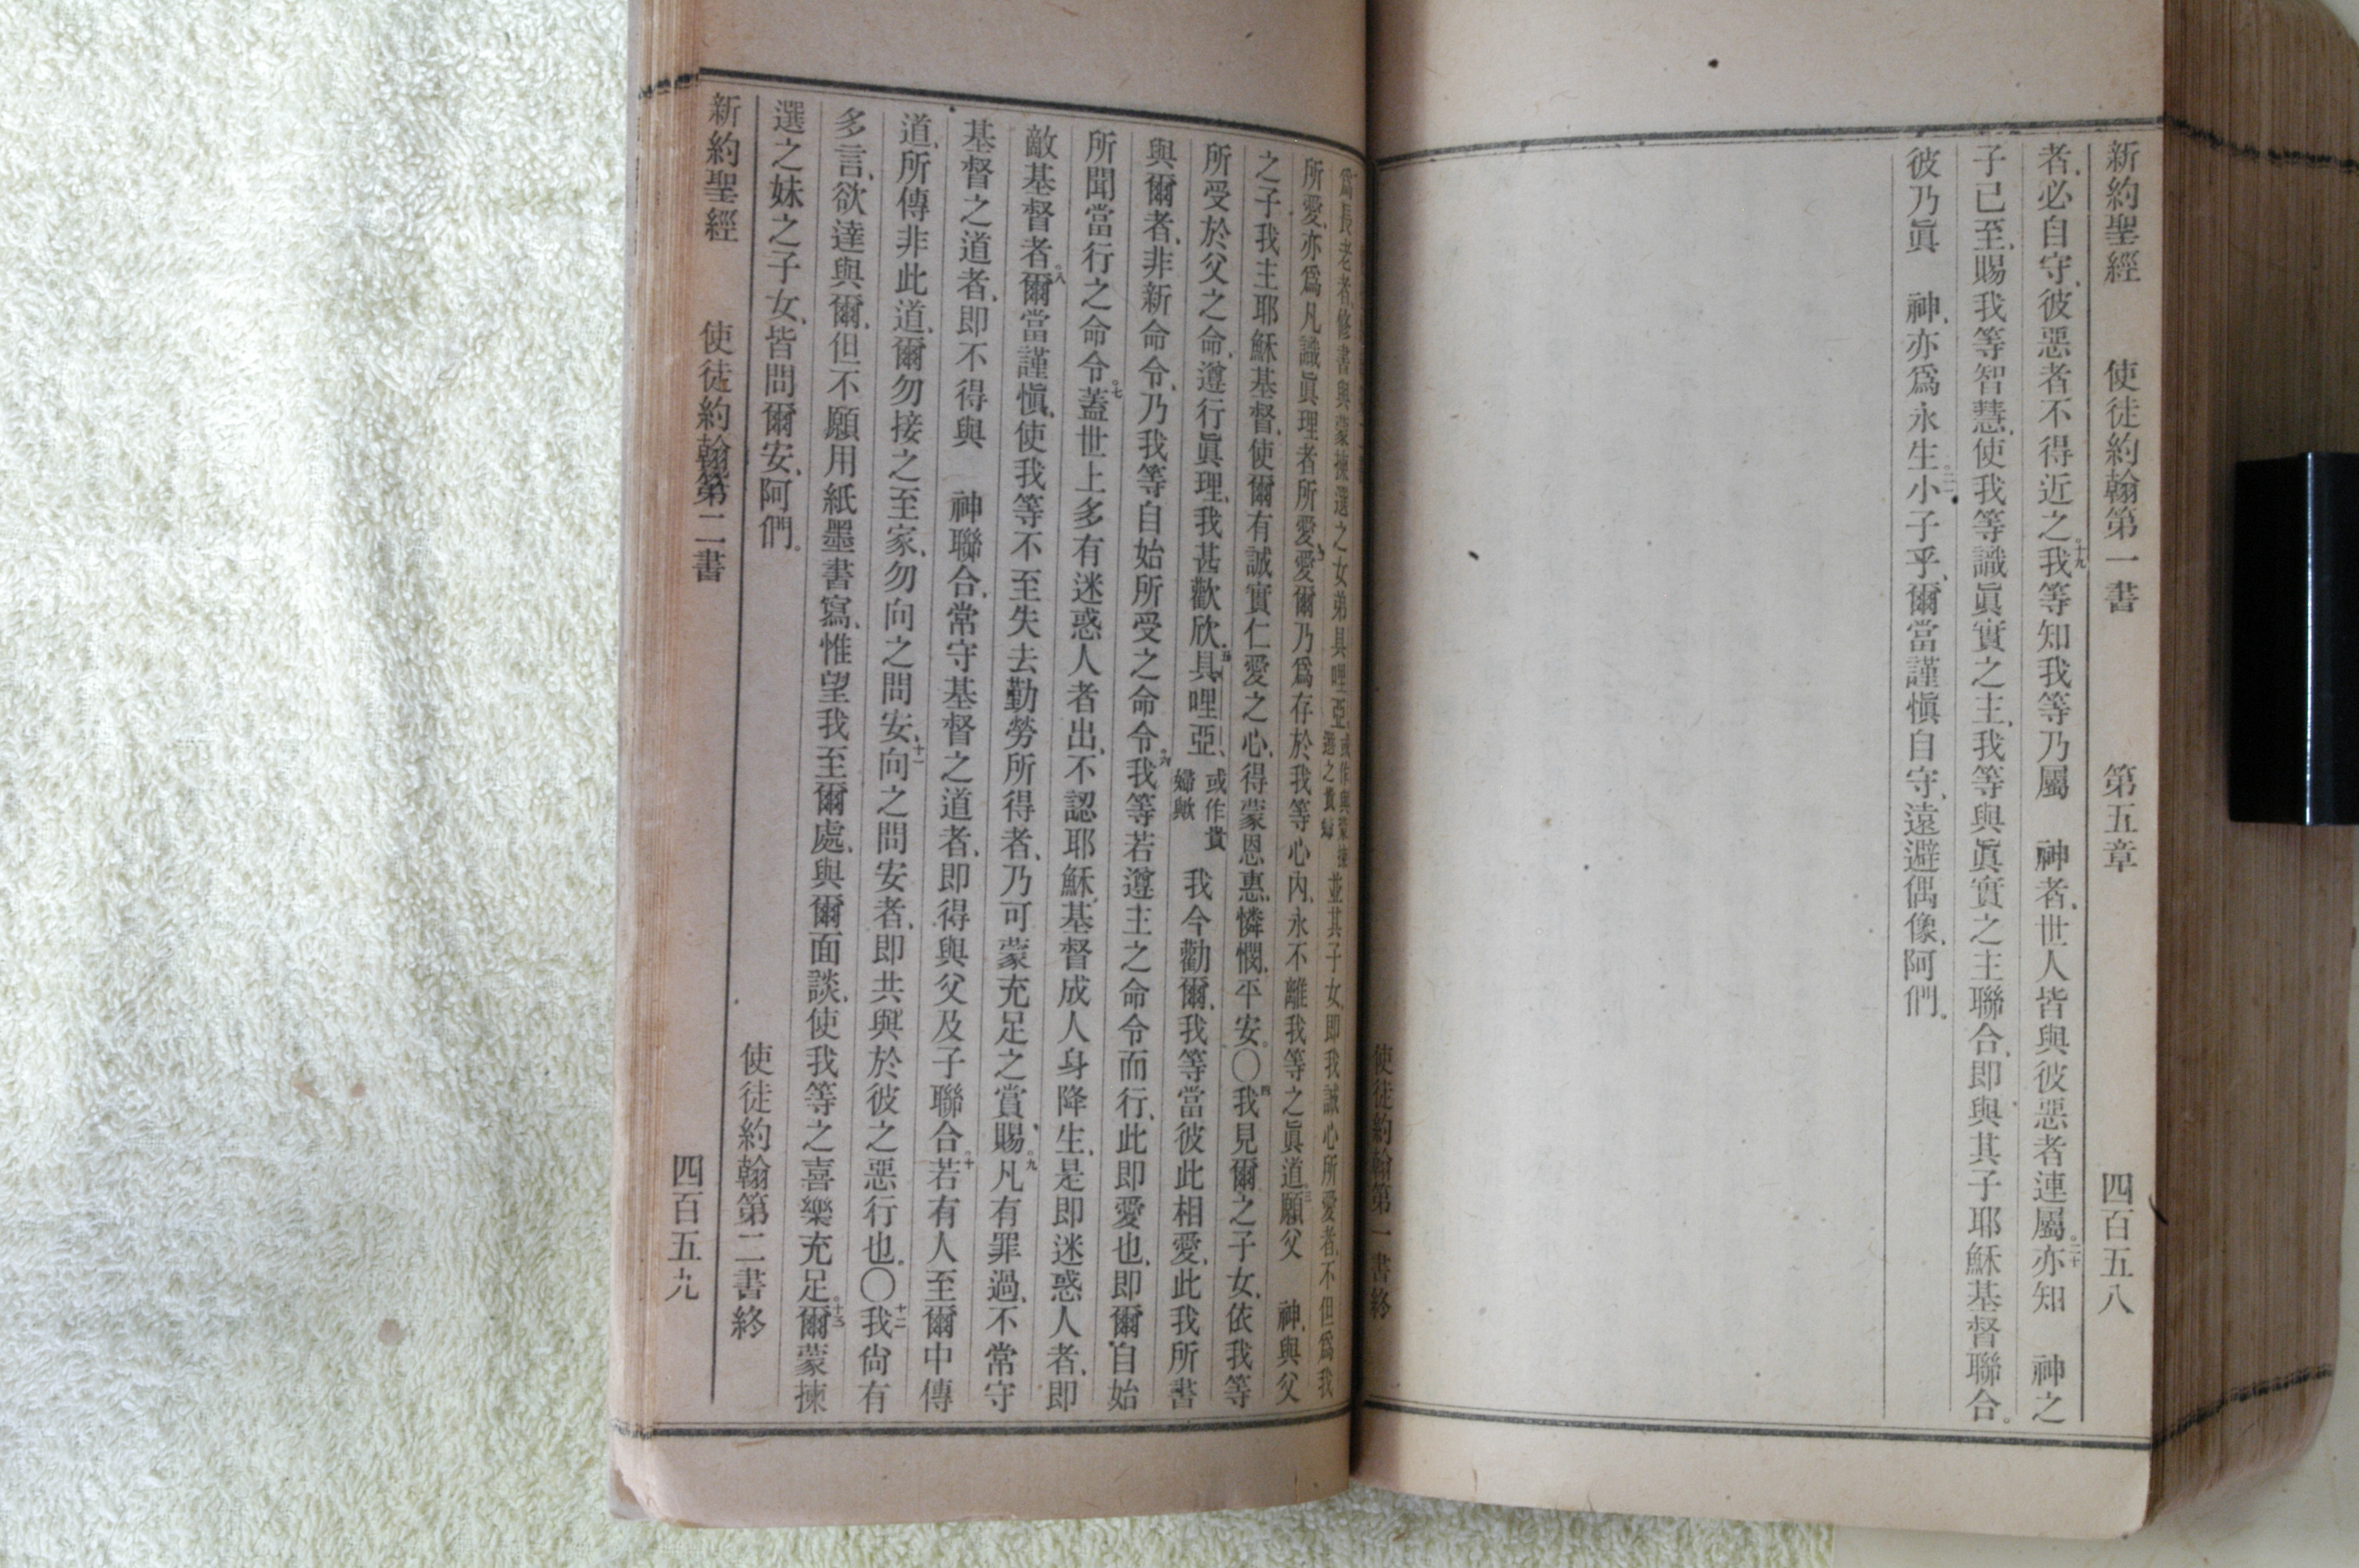 新約聖經　使徒約翰第一書　第五章　四百五八
者、必自守、彼惡者不得近之。十九我等知我等乃屬　神者、世人皆與彼惡者連屬。二十亦知　神之
子已至、賜我等智慧、使我等識眞實之主、我等與眞實之主聯合、即與其子耶穌基督聯合。
彼乃眞　神、亦爲永生。二一小子乎、爾當謹愼自守、遠避偶像、阿們。
使徒約翰第一書終
爲長老者、修書與蒙揀選之女弟具哩亞、或作與蒙揀選之貴婦並其子女、即我誠心所愛者、不但爲我
所愛、亦爲凡識眞理者所愛、二愛爾乃爲存於我等心內、永不離我等之眞道。三願父　神、與父
之子我主耶穌基督、使爾有誠實仁愛之心、得蒙恩惠、憐憫、平安。〇四我見爾之子女、依我等
所受於父之命、遵行眞理、我甚歡欣。五具哩亞、或作貴婦歟　我今勸爾、我等當彼此相愛、此我所書
與爾者、非新命令、乃我等自始所受之命令。六我等若遵主之命令而行、此即愛也、即爾自始
所聞當行之命令。七蓋世上多有迷惑人者出、不認耶穌基督成人身降生、是即迷惑人者、即
敵基督者。八爾當謹愼、使我等不至失去勤勞所得者、乃可蒙充足之賞賜。九凡有罪過、不常守
基督之道者、即不得與　神聯合、常守基督之道者、即得與父及子聯合。十若有人至爾中傳
道、所傳非此道、爾勿接之至家、勿向之問安、十一向之問安者、即共與於彼之惡行也。〇十二我尙有
多言、欲達與爾、但不願用紙墨書寫、惟望我至爾處、與爾面談、使我等之喜樂充足。十三爾蒙揀
選之妹之子女、皆問爾安、阿們。
使徒約翰第二書終
新約聖經　使徒約翰第二書　四百五九